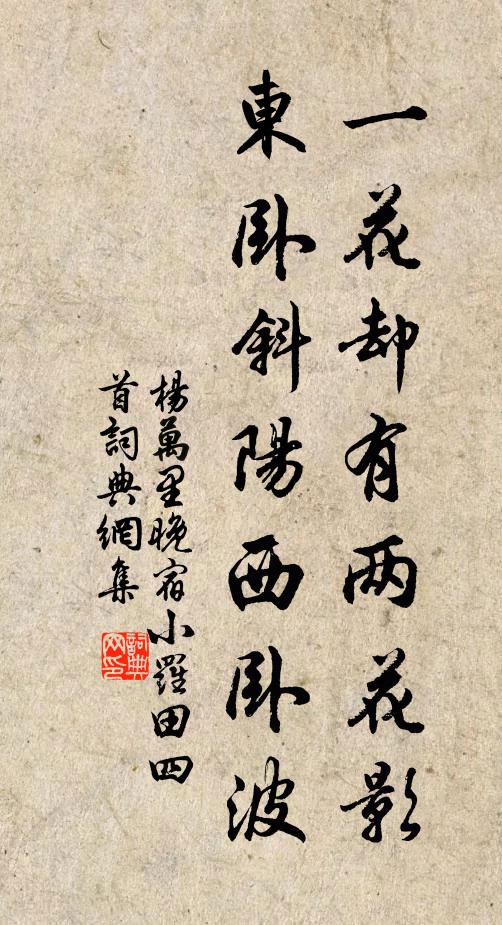 一花却有两花影
東卧斜陽西卧波
楊萬里晚宿小羅田四
首詞典網集
詞典
网印